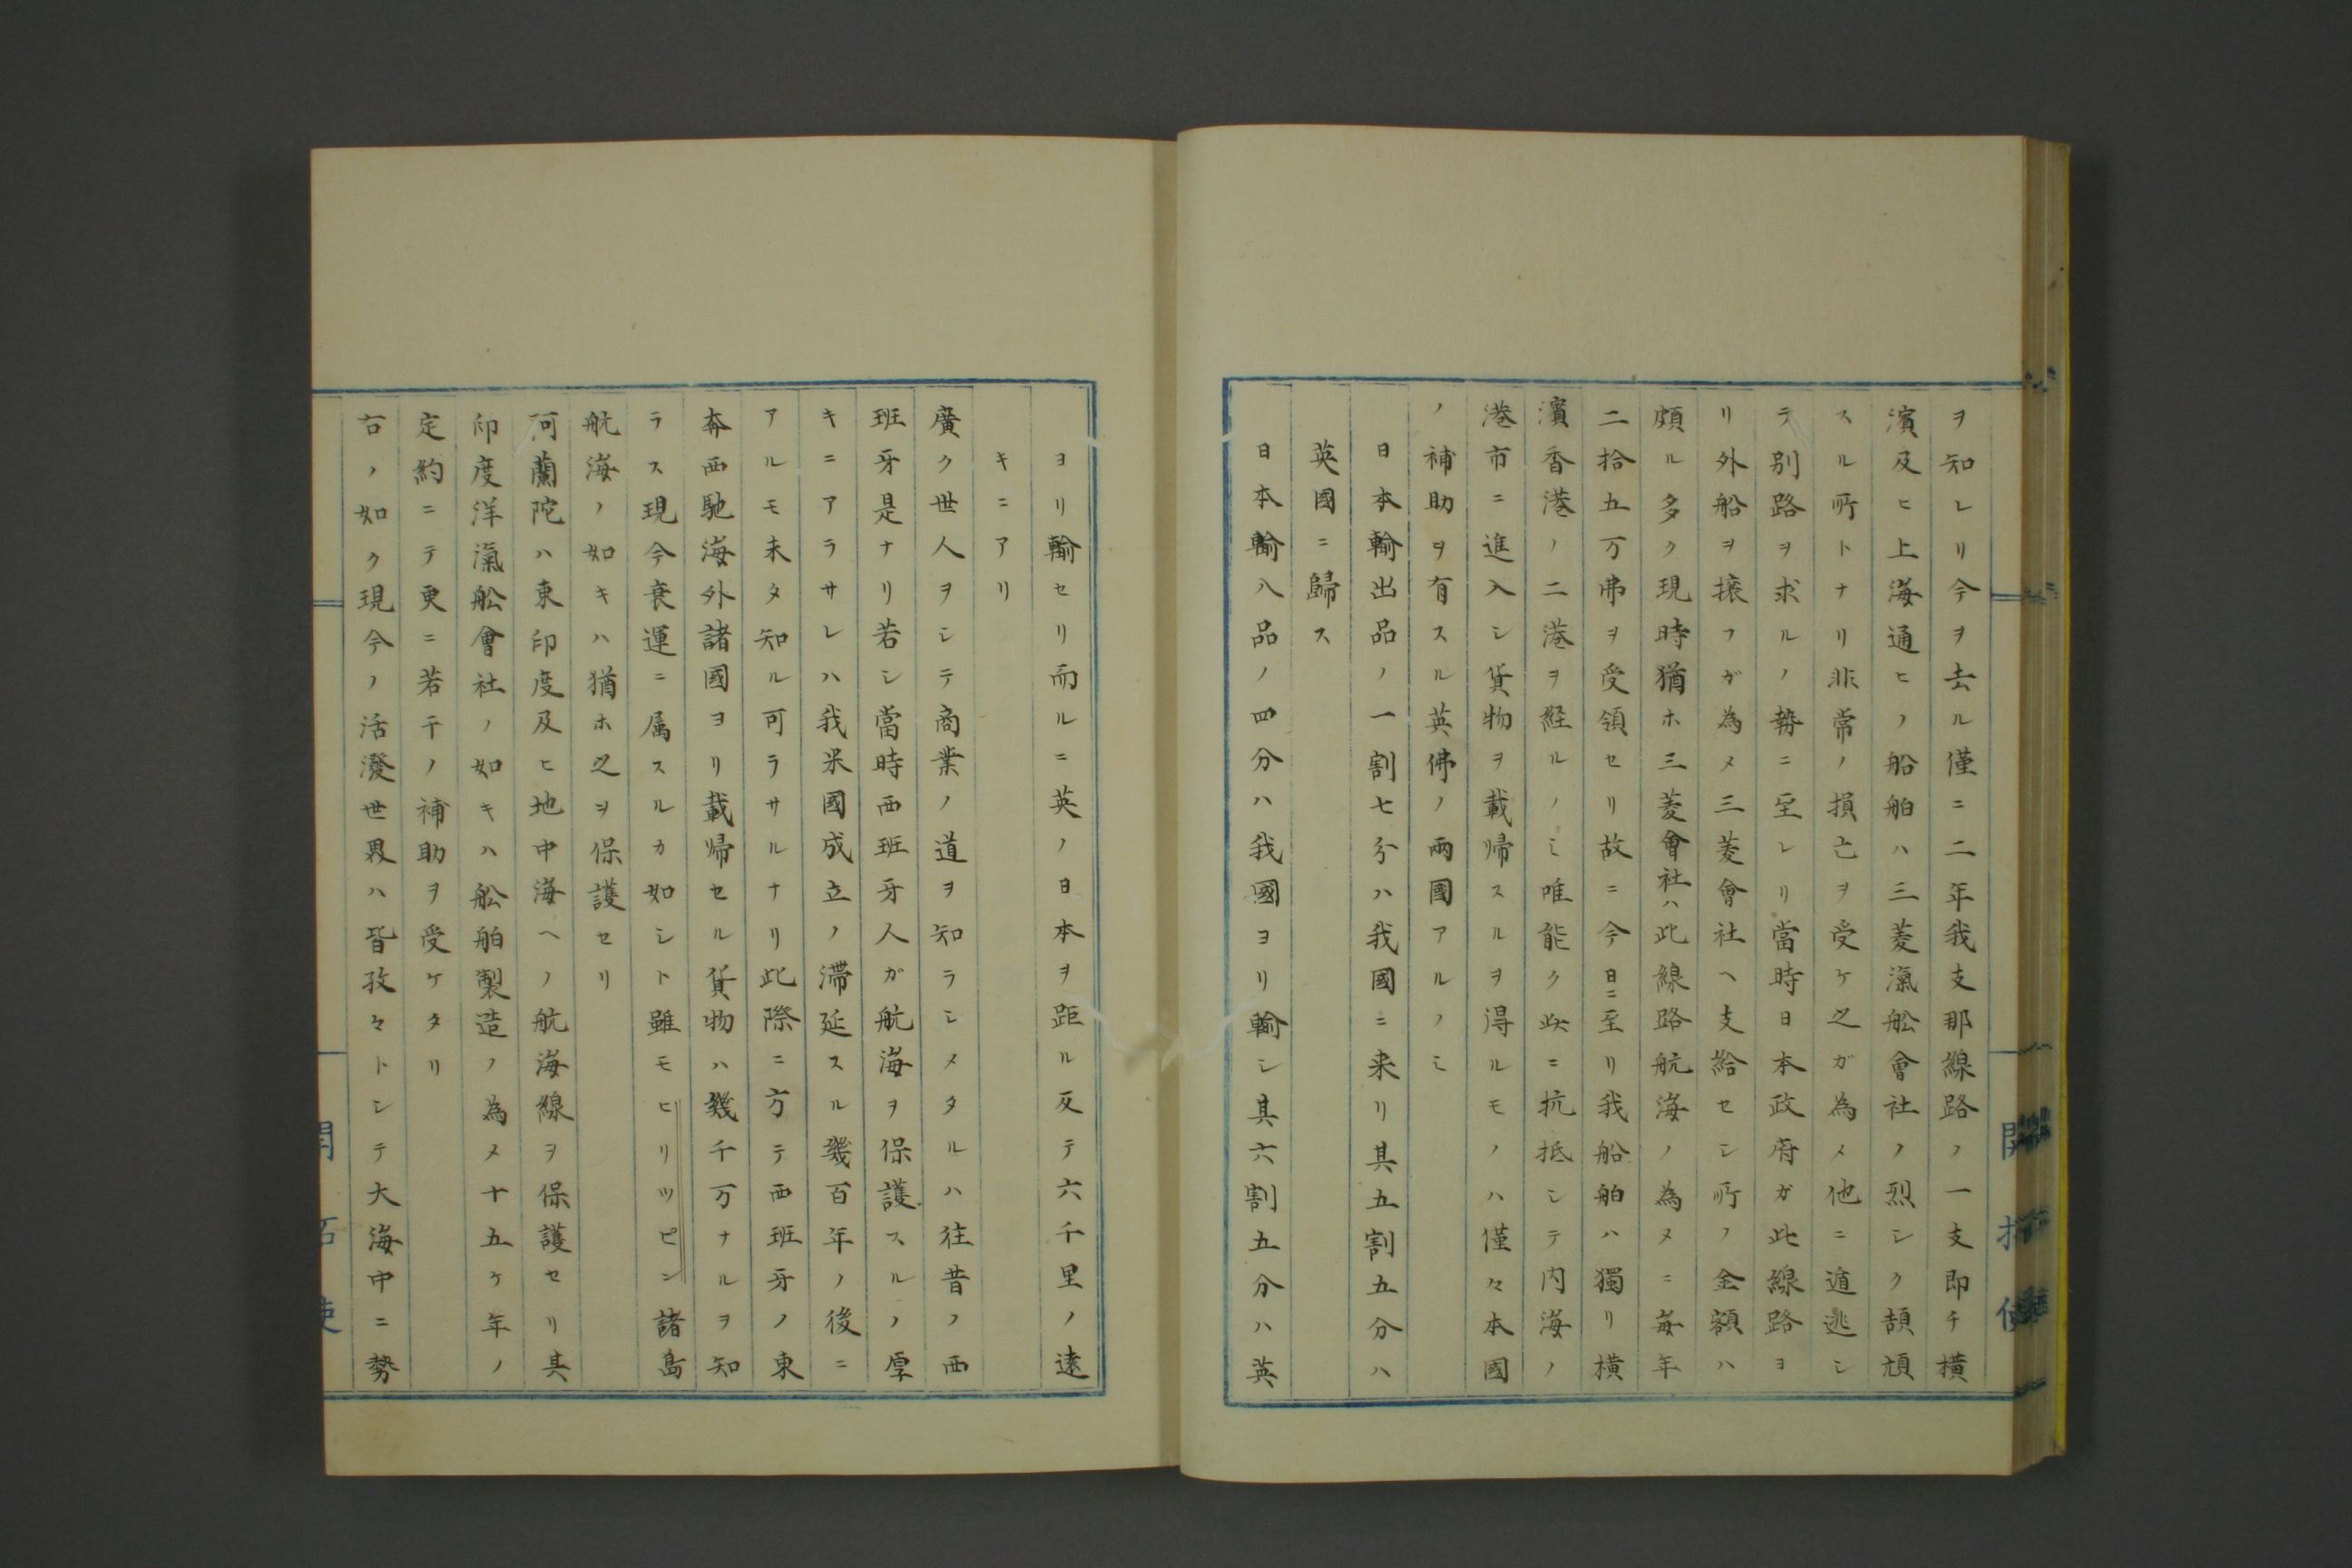 ヲ知レリ今ヲ去ル僅ニ二年我支那線路ノ一支即チ横
濱及ヒ上海通ヒノ船舶ハ三菱滊舩會社ノ烈シク頡頏
スル所トナリ非常ノ損亡ヲ受ケ之ガ為メ他ニ遁逃シ
テ別路ヲ求ルノ勢ニ至レリ當時日本政府ガ此線路ヨ
リ外船ヲ攘フガ為メ三菱會社ヘ支給セシ所ノ金額ハ
頗ル多ク現時猶ホ三菱會社ハ此線路航海ノ為メニ毎年
二拾五万弗ヲ受領セリ故ニ今日ニ至リ我船舶ハ獨リ横
濱香港ノ二港ヲ経ルノミ唯能ク此ニ抗抵シテ内海ノ
港市ニ進入シ貨物ヲ載帰スルヲ得ルモノハ僅々本國
ノ補助ヲ有スル英佛ノ兩國アルノミ
日本輸出品ノ一割七分ハ我國ニ来リ其五割五分ハ
英國ニ歸ス
日本輸入品ノ四分ハ我國ヨリ輸シ其六割五分ハ英
ヨリ輸セリ而ルニ英ノ日本ヲ距ル反テ六千里ノ遠
キニアリ
廣ク世人ヲシテ商業ノ道ヲ知ラシメタルハ往昔ノ西
班牙是ナリ若シ當時西班牙人ガ航海ヲ保護スルノ厚
キニアラサレハ我米國成立ノ滞延スル幾百年ノ後ニ
アルモ未タ知ル可ラサルナリ此際ニ方テ西班牙ノ東
奔西馳海外諸國ヨリ載帰セル貨物ハ幾千万ナルヲ知
ラス現今衰運ニ属スルカ如シト雖モヒリツピン諸島
航海ノ如キハ猶ホ之ヲ保護セリ
阿蘭陀ハ東印度及ヒ地中海ヘノ航海線ヲ保護セリ其
印度洋滊舩會社ノ如キハ舩舶製造ノ為メ十五ケ年ノ
定約ニテ更ニ若干ノ補助ヲ受ケタリ
右ノ如ク現今ノ活潑世界ハ皆孜々トシテ大海中ニ勢
開拓使